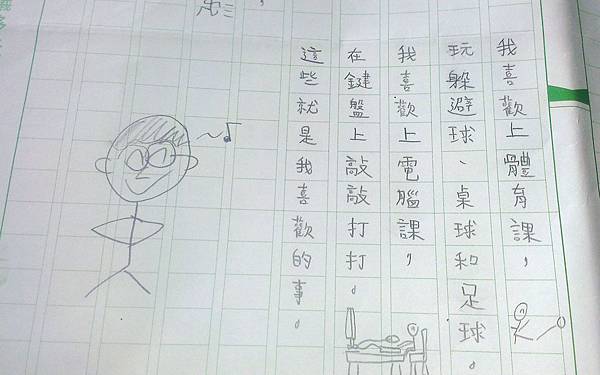 我喜歡上體育課，
玩躲避球、桌球和足球。
我喜歡上電腦課，
在鍵盤上敲敲打打。
這些就是我喜歡的事。